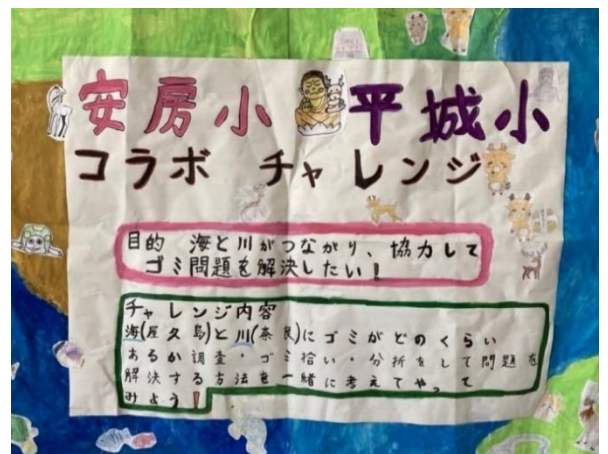 安房小 平城小
コラボ チャレンジ
目的 海と川がつながり、協力して
ゴミ問題を解決したい!
チャレンジ内容
海(屋久島)と川(奈良)にゴミがどのくらい
あるか調査・ゴミ拾い・分析をして問題を
解決する方法を一緒に考えてやって
みよう!